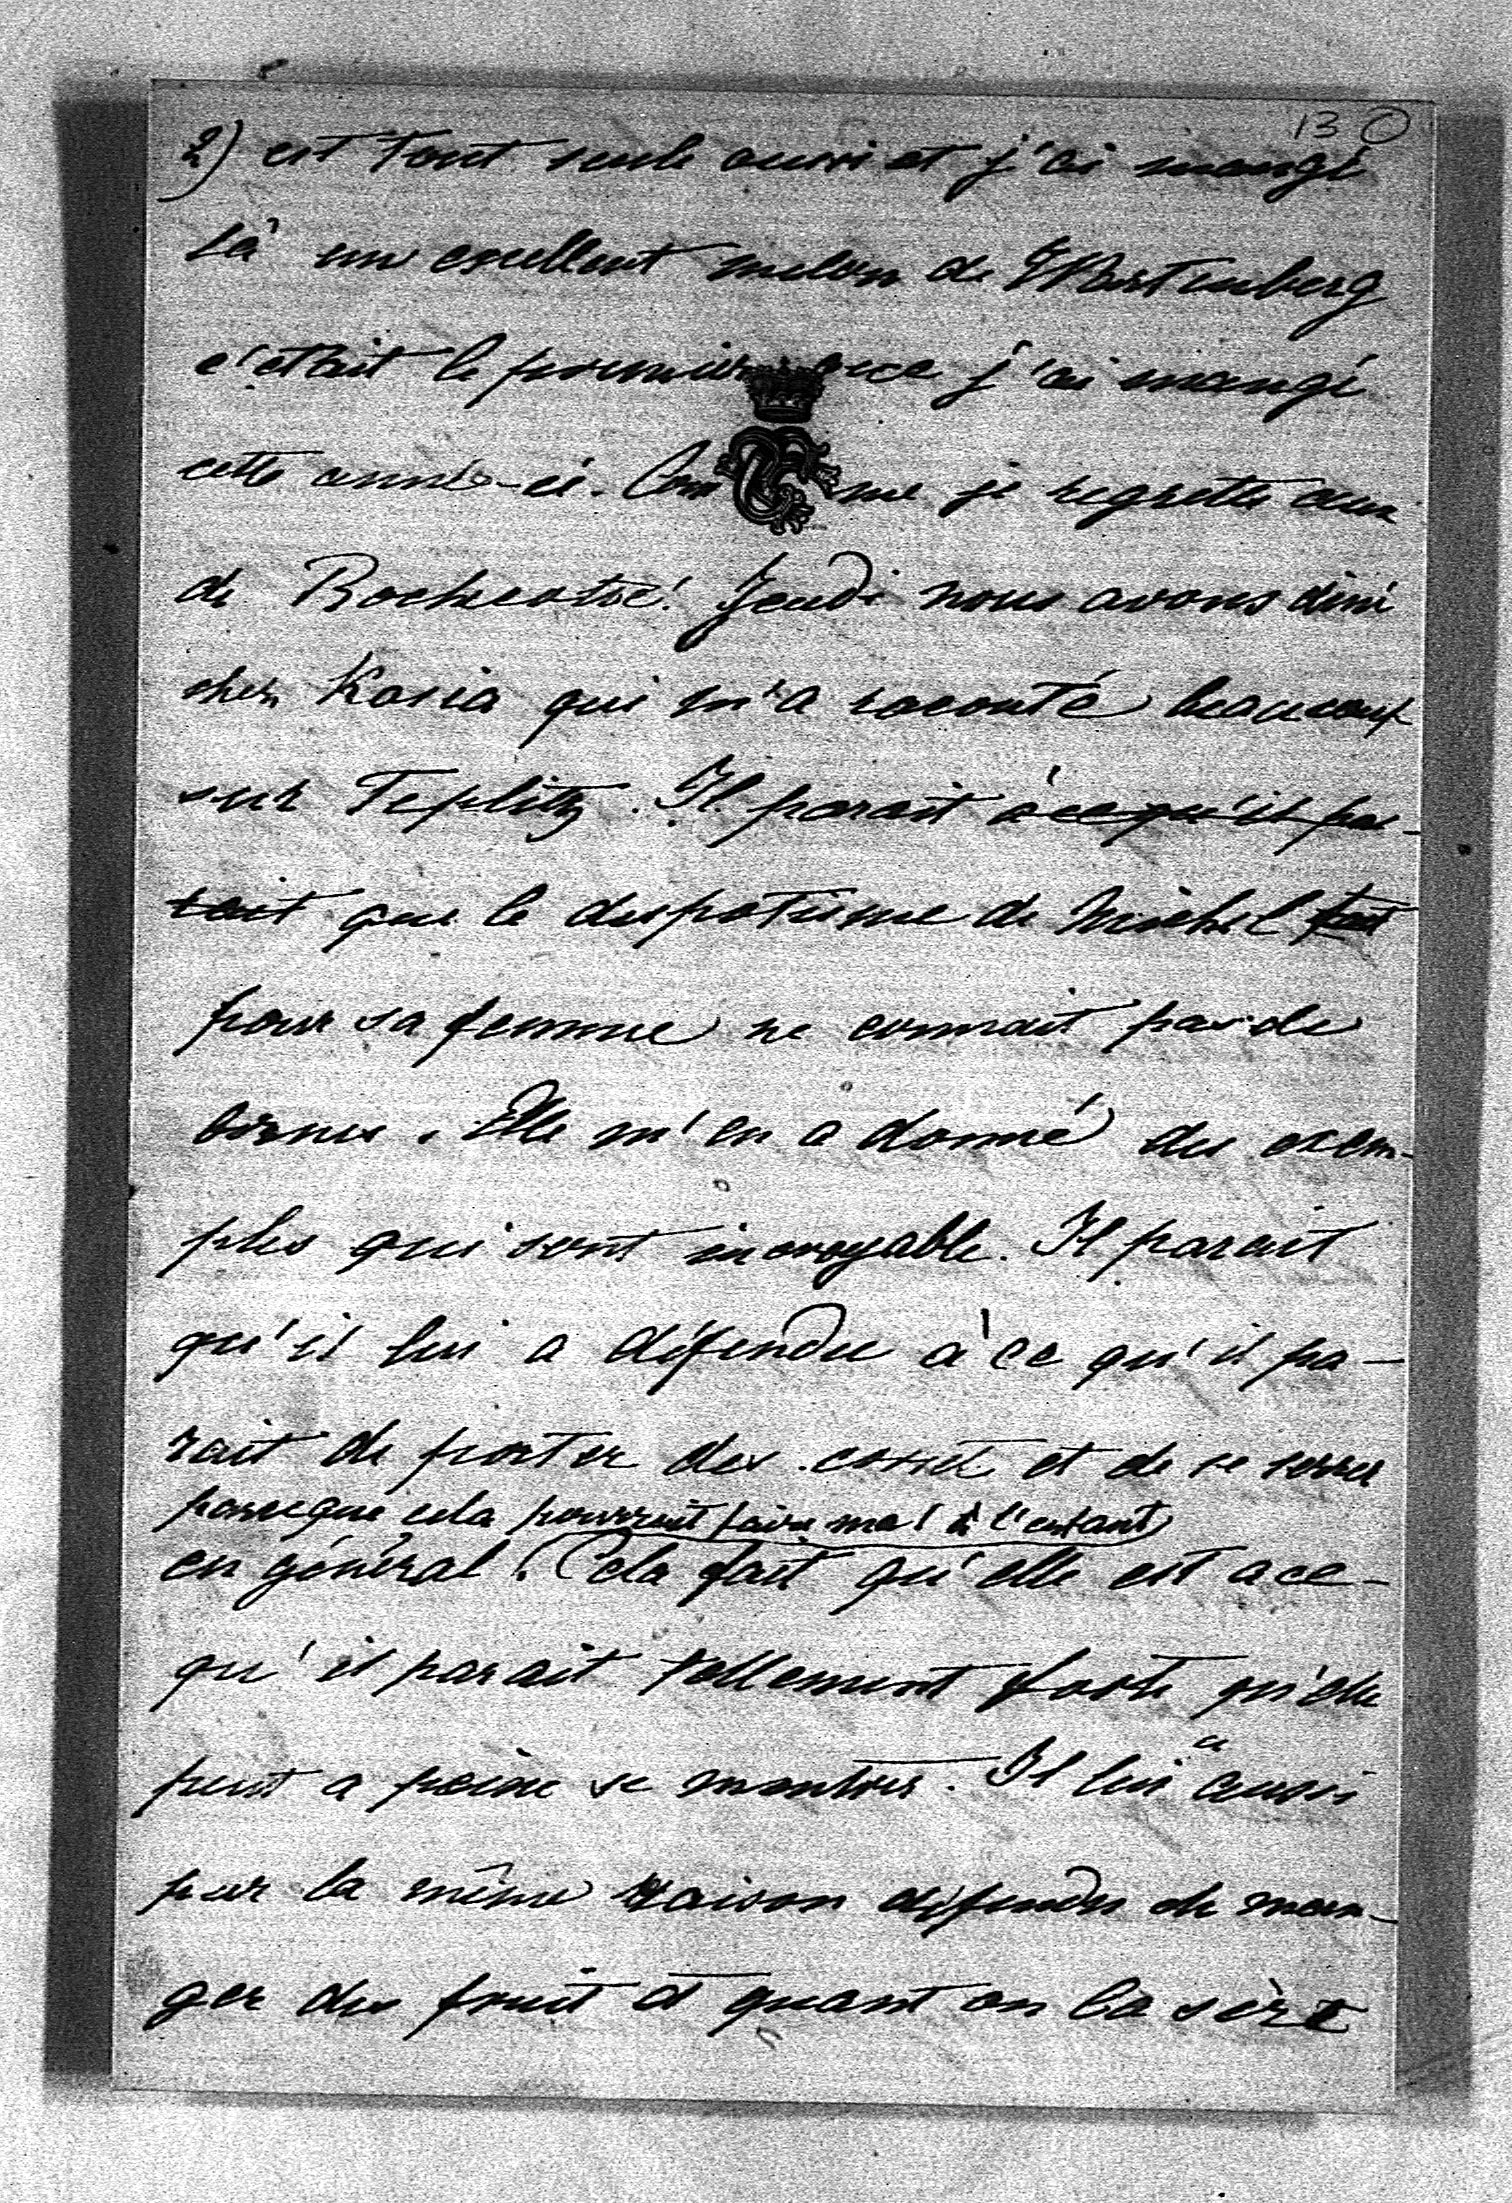 13
2) est tout seule aussi et j'ai mangé
là un excellent melon de Wartenberg
c'était le premier que j'ai mangé
cette année-ci. Comme je regrette ceux
de Rochecotte! Jeudi nous avons diné
chez Kasia qui m'a raconté beaucoup
sur Teplitz. Il parait à ce qu'il pa-
rait que le despotisme de Michel
pour sa femme ne connait pas de
bornes. Elle m'en a donné des exem-
ples qui sont incroyable. Il parait
qu'il lui a défendu à ce qu'il pa-
rait de porter des corset et de se serrer
parceque cela pourrait faire mal à l'enfant
en général. Cela fait qu'elle est a ce-
qu'il parait tellement forte qu'elle
peut a peine se montrer. Il lui a aussi
pour la même raison défendu de man-
ger des fruit et quant on la sèrt